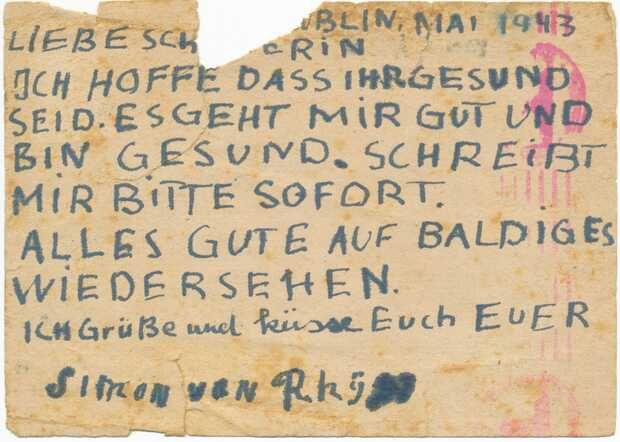 UBLIN, MAI 1943
LIEBE SCH ERIN
ICH HOFFE DASS IHR GESUND
SEID. ES GEHT MIR GUT UND
BIN GESUND. SCHREIBT
MIR BITTE SOFORT.
ALLES GUTE AUF BALDIGES
WIEDERSEHEN.
ICH Grüße und küsse Euch EUER
Simon van